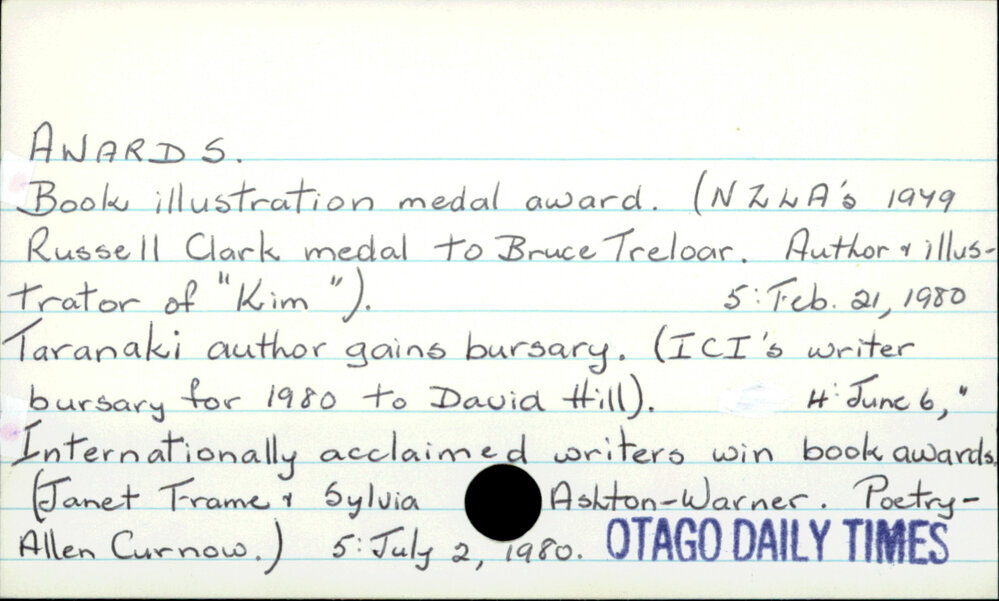 AWARDS.
Book illustration medal award. (NZLA's 1979
Russell Clark medal to Bruce Treloar. Author & illus-
trator of "Kim").
5: Feb. 21, 1980
Taranaki author gains bursary. (ICI's writer
bursary for 1980 to David Hill). 4: June 6, "
Internationally acclaimed writers win book awards.
(Janet Frame & Sylvia Ashton-Warner. Poetry-
Allen Curnow.) 5: July 2, 1980. OTAGO DAILY TIMES